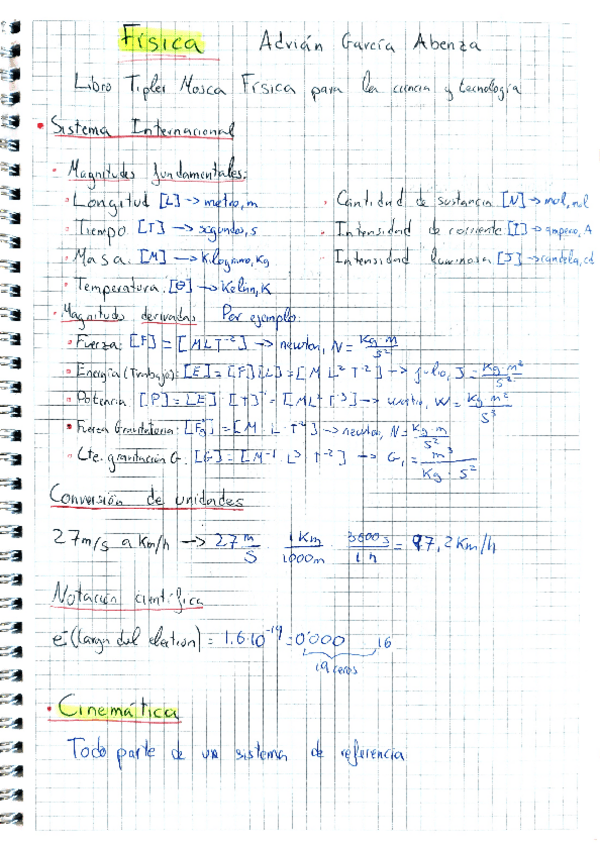 Física Adrián García Abenza
Libro Tipler Mosca Física para la ciencia y tecnología
• Sistema Internacional
• Magnitudes fundamentales:
• Longitud [L] → metro, m
• Cantidad de sustancia [N] → mol, mol
• Tiempo [T] → segundo, s
• Intensidad de corriente [I] → ampero, A
• Masa [M] → Kilogramo, Kg
Intensidad luminosa [J] → candela, cd
• Temperatura [Θ] → Kelvin, K
• Magnitudes derivadas Por ejemplo:
• Fuerza: [F] = [MLT⁻²] → newton, N = Kg m / s²
• Energía (Trabajo): [E] = [F][L] = [M L² T⁻²] → julio, J = Kg m² / s²
• Potencia [P] = [E] [T]⁻¹ = [ML² T⁻³] → watio, W = Kg m² / s³
• Fuerza Gravitatoria: [Fg] = [M L T⁻²] → newton, N = Kg m / s²
• Cte. gravitación G. [G] = [M⁻¹ L³ T⁻²] → G, = m³ / Kg s²
Conversión de unidades
27 m/s a Km/h → 27 m/s 1 Km / 1000 m 3600 s / 1 h = 97,2 Km/h
Notación científica
e⁻ (carga del electron) = 1.6·10⁻¹⁹ = 0'000 16
19 ceros
• Cinemática
Todo parte de un sistema de referencia